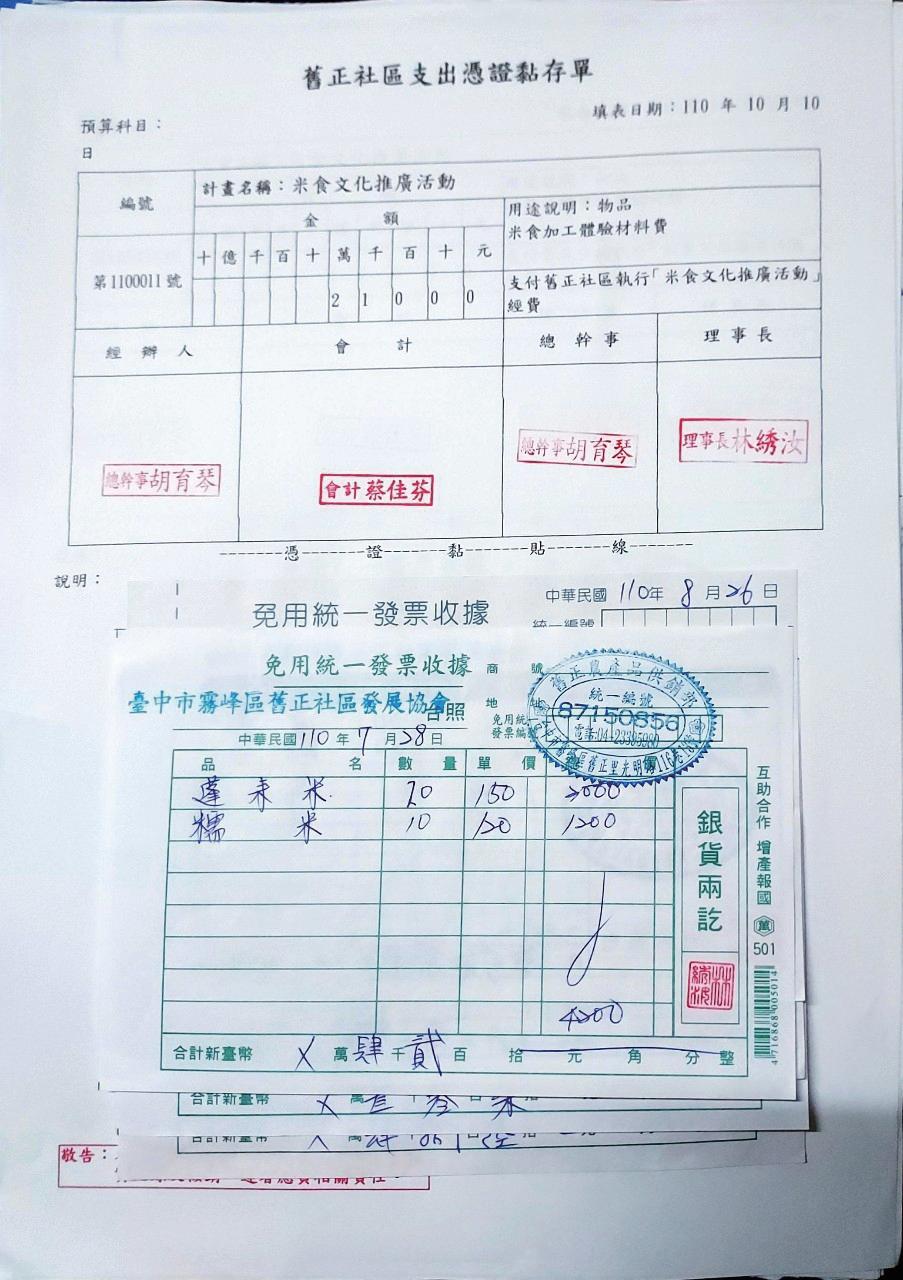 舊正社區支出憑證黏存單
填表日期：110 年 10 月 10
預算科目：
日
編號
計畫名稱：米食文化推廣活動
金 額
用途說明：物品
米食加工體驗材料費
十 億 千 百 十 萬 千 百 十 元
第1100011號
2 1 0 0 0
支付舊正社區執行「米食文化推廣活動」
經費
經 辦 人
會 計
總 幹 事
理 事 長
總幹事胡育琴
會計蔡佳芬
總幹事胡育琴
理事長林綉汝
-------憑-------證-------黏-------貼-------線-------
說明：
中華民國 110年 8 月 26 日
免用統一發票收據
統一編號
免用統一發票收據
商 號
舊正農產品供銷部
臺中市霧峰區舊正社區發展協會
台照
地
統一編號
87150856
免用統一
發票編號
中華民國 110 年 7 月 28 日
品 名 數 量 單 價 價
蓬萊米 20 150 3000
糯 米 10 120 1200
4200
銀貨兩訖
互助合作 增產報國
萬
501
4 716868 005014
合計新臺幣 X 萬 肆 千 貳 百 拾 元 角 分 整
合計新臺幣
合計新臺幣
敬告：